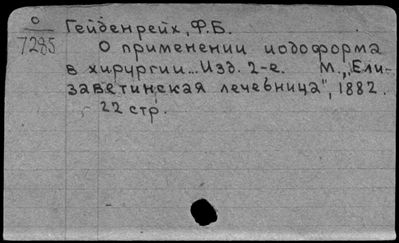 О
7285
Гейденрейх, Ф.Б.
О применении иодоформа
в хирургии... Изд. 2-е. М., „Ели-
заветинская лечебница", 1882.
22 стр.